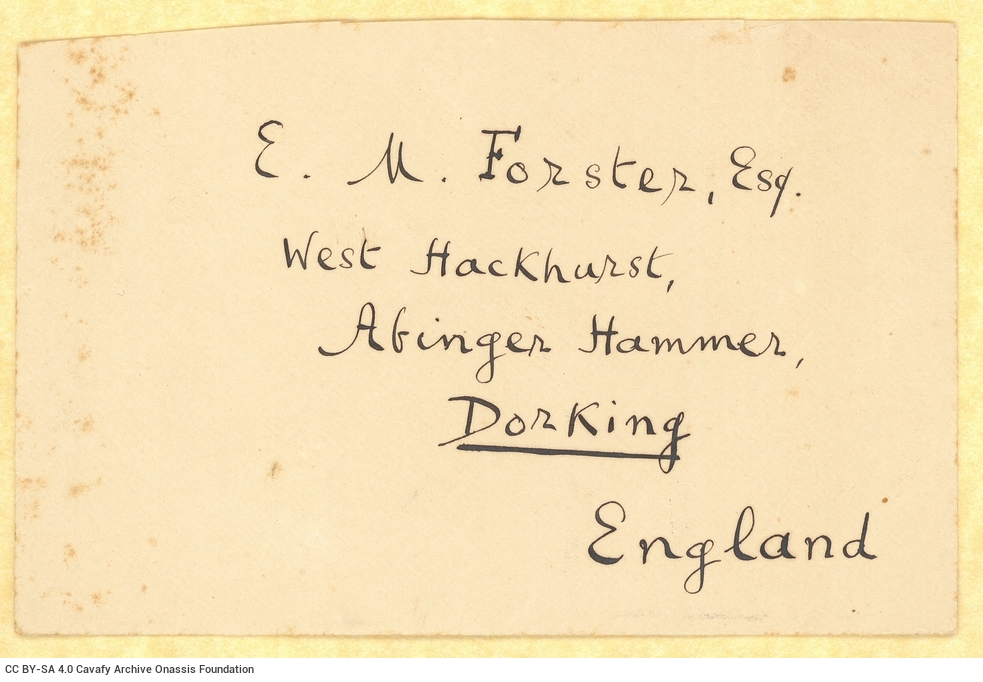 E. M. Forster, Esq.
West Hackhurst,
Abinger Hammer,
Dorking
England
CC BY-SA 4.0 Cavafy Archive Onassis Foundation